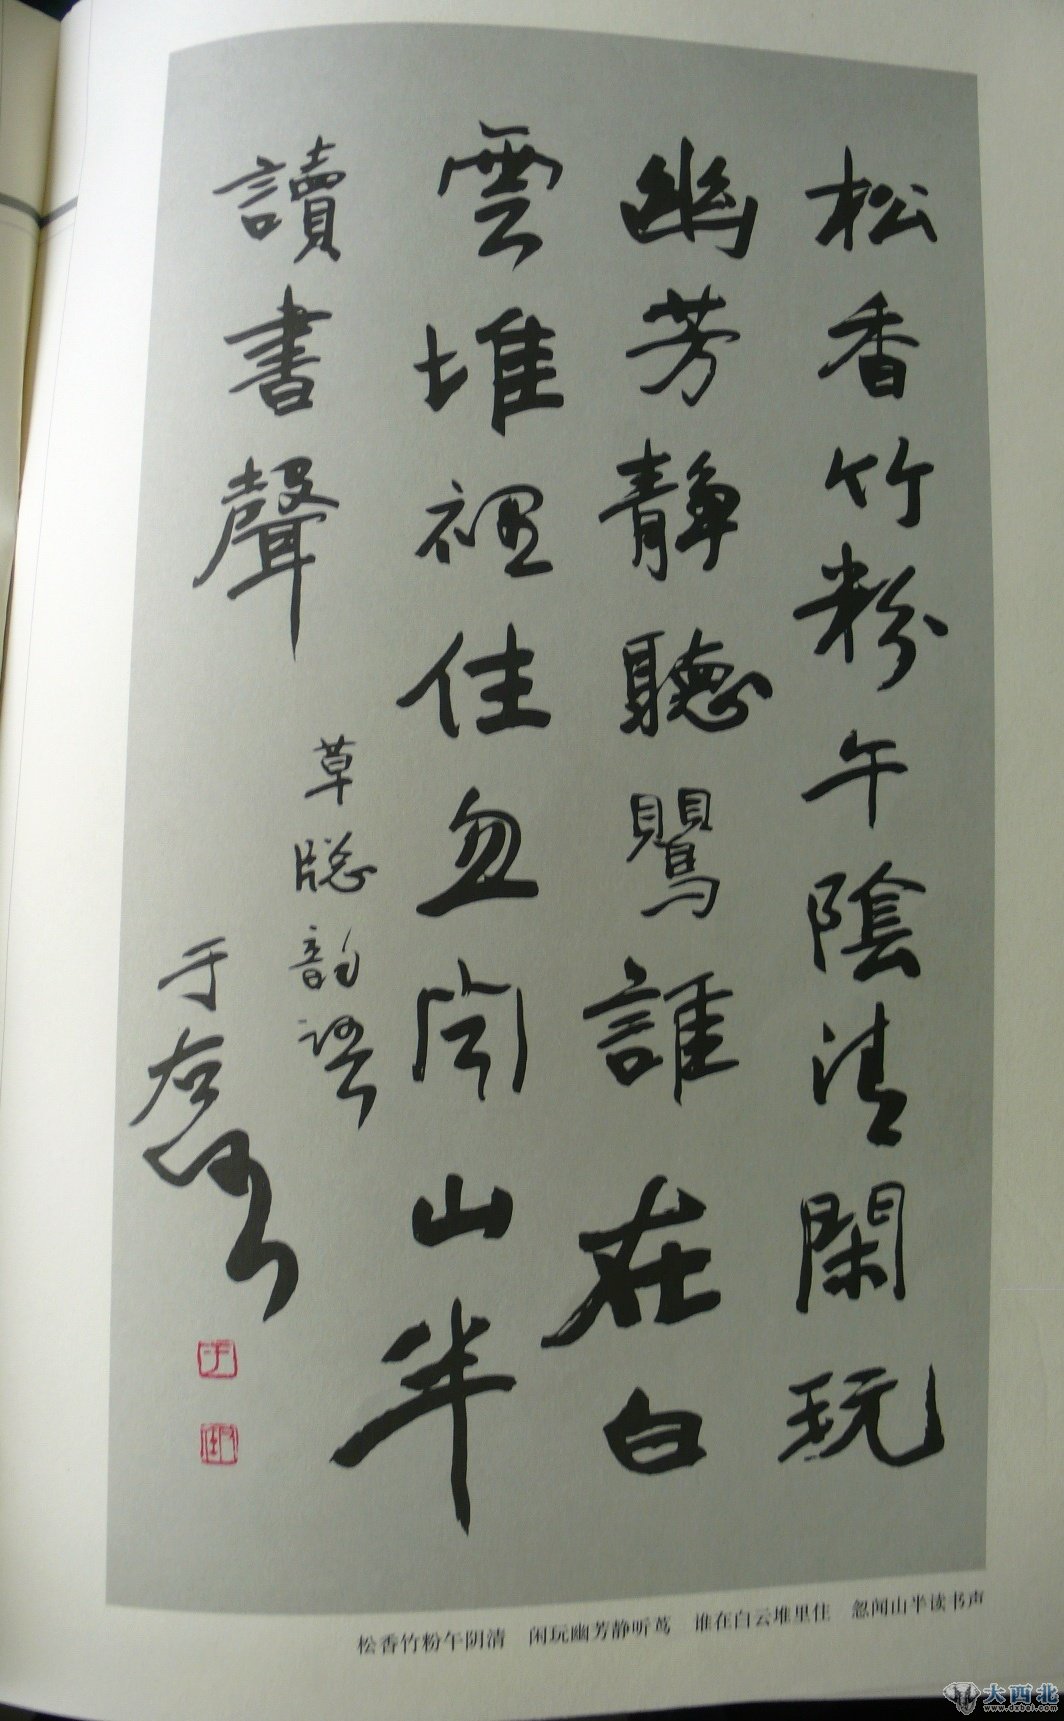 松香竹粉午陰清閑玩
幽芳靜聽鸎誰在白
雲堆裡住忽闻山半
讀書聲
草牕韵語
于右
松香竹粉午阴清 闲玩幽芳静听莺 谁在白云堆里住 忽闻山半读书声
大西北
www.dxbei.com